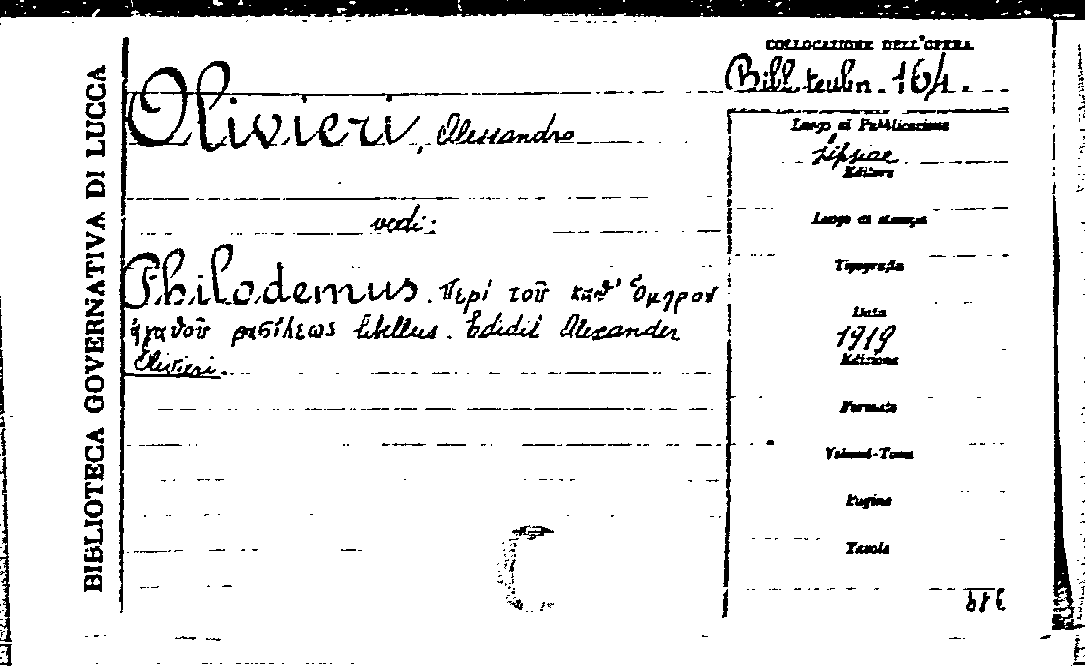 BIBLIOTECA GOVERNATIVA DI LUCCA
COLLOCAZIONE DELL'OPERA
Bibl. teubn. 164.
Olivieri, Alessandro
Luogo di Pubblicazione
Lipsiae
Editore
vedi:
Luogo di stampa
Tipografia
Philodemus. Περί τοῦ καθ' Ὅμηρον
ἀγαθοῦ βασίλεως libellus. Edidit Alexander
Olivieri.
Data
1919
Edizione
Formato
Volumi-Tomi
Pagine
Tavole